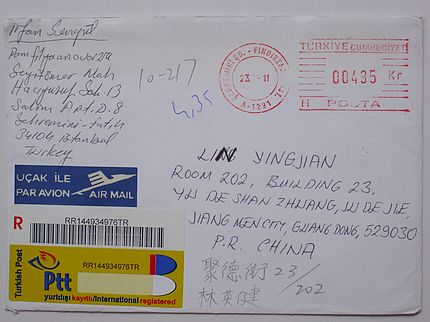 İrfan Sengül
Pamfilyaanovorzin
Seyitömer Mah
Haciyusuf Sok. 13
Salim Apt. D.8
Sehremini-Fatih
34104 istanbul
Turkey
10-217
4,35
ŞEHREMİNİ ŞB. - FINDIKZADE
23. -11
A-1291
İST
TÜRKİYE CUMHURİYETİ
00435 Kr
H POSTA
UÇAK İLE
PAR AVION
AIR MAIL
LIN YINGJIAN
ROOM 202, BUILDING 23,
YU DE SHAN ZHUANG, JU DE JIE,
JIANG MEN CITY, GUANG DONG, 529030
P.R. CHINA
聚德街 23/202
林英健
R
RR144934976TR
Turkish Post
RR144934976TR
Ptt
yurtdışı kayıtlı/International registered